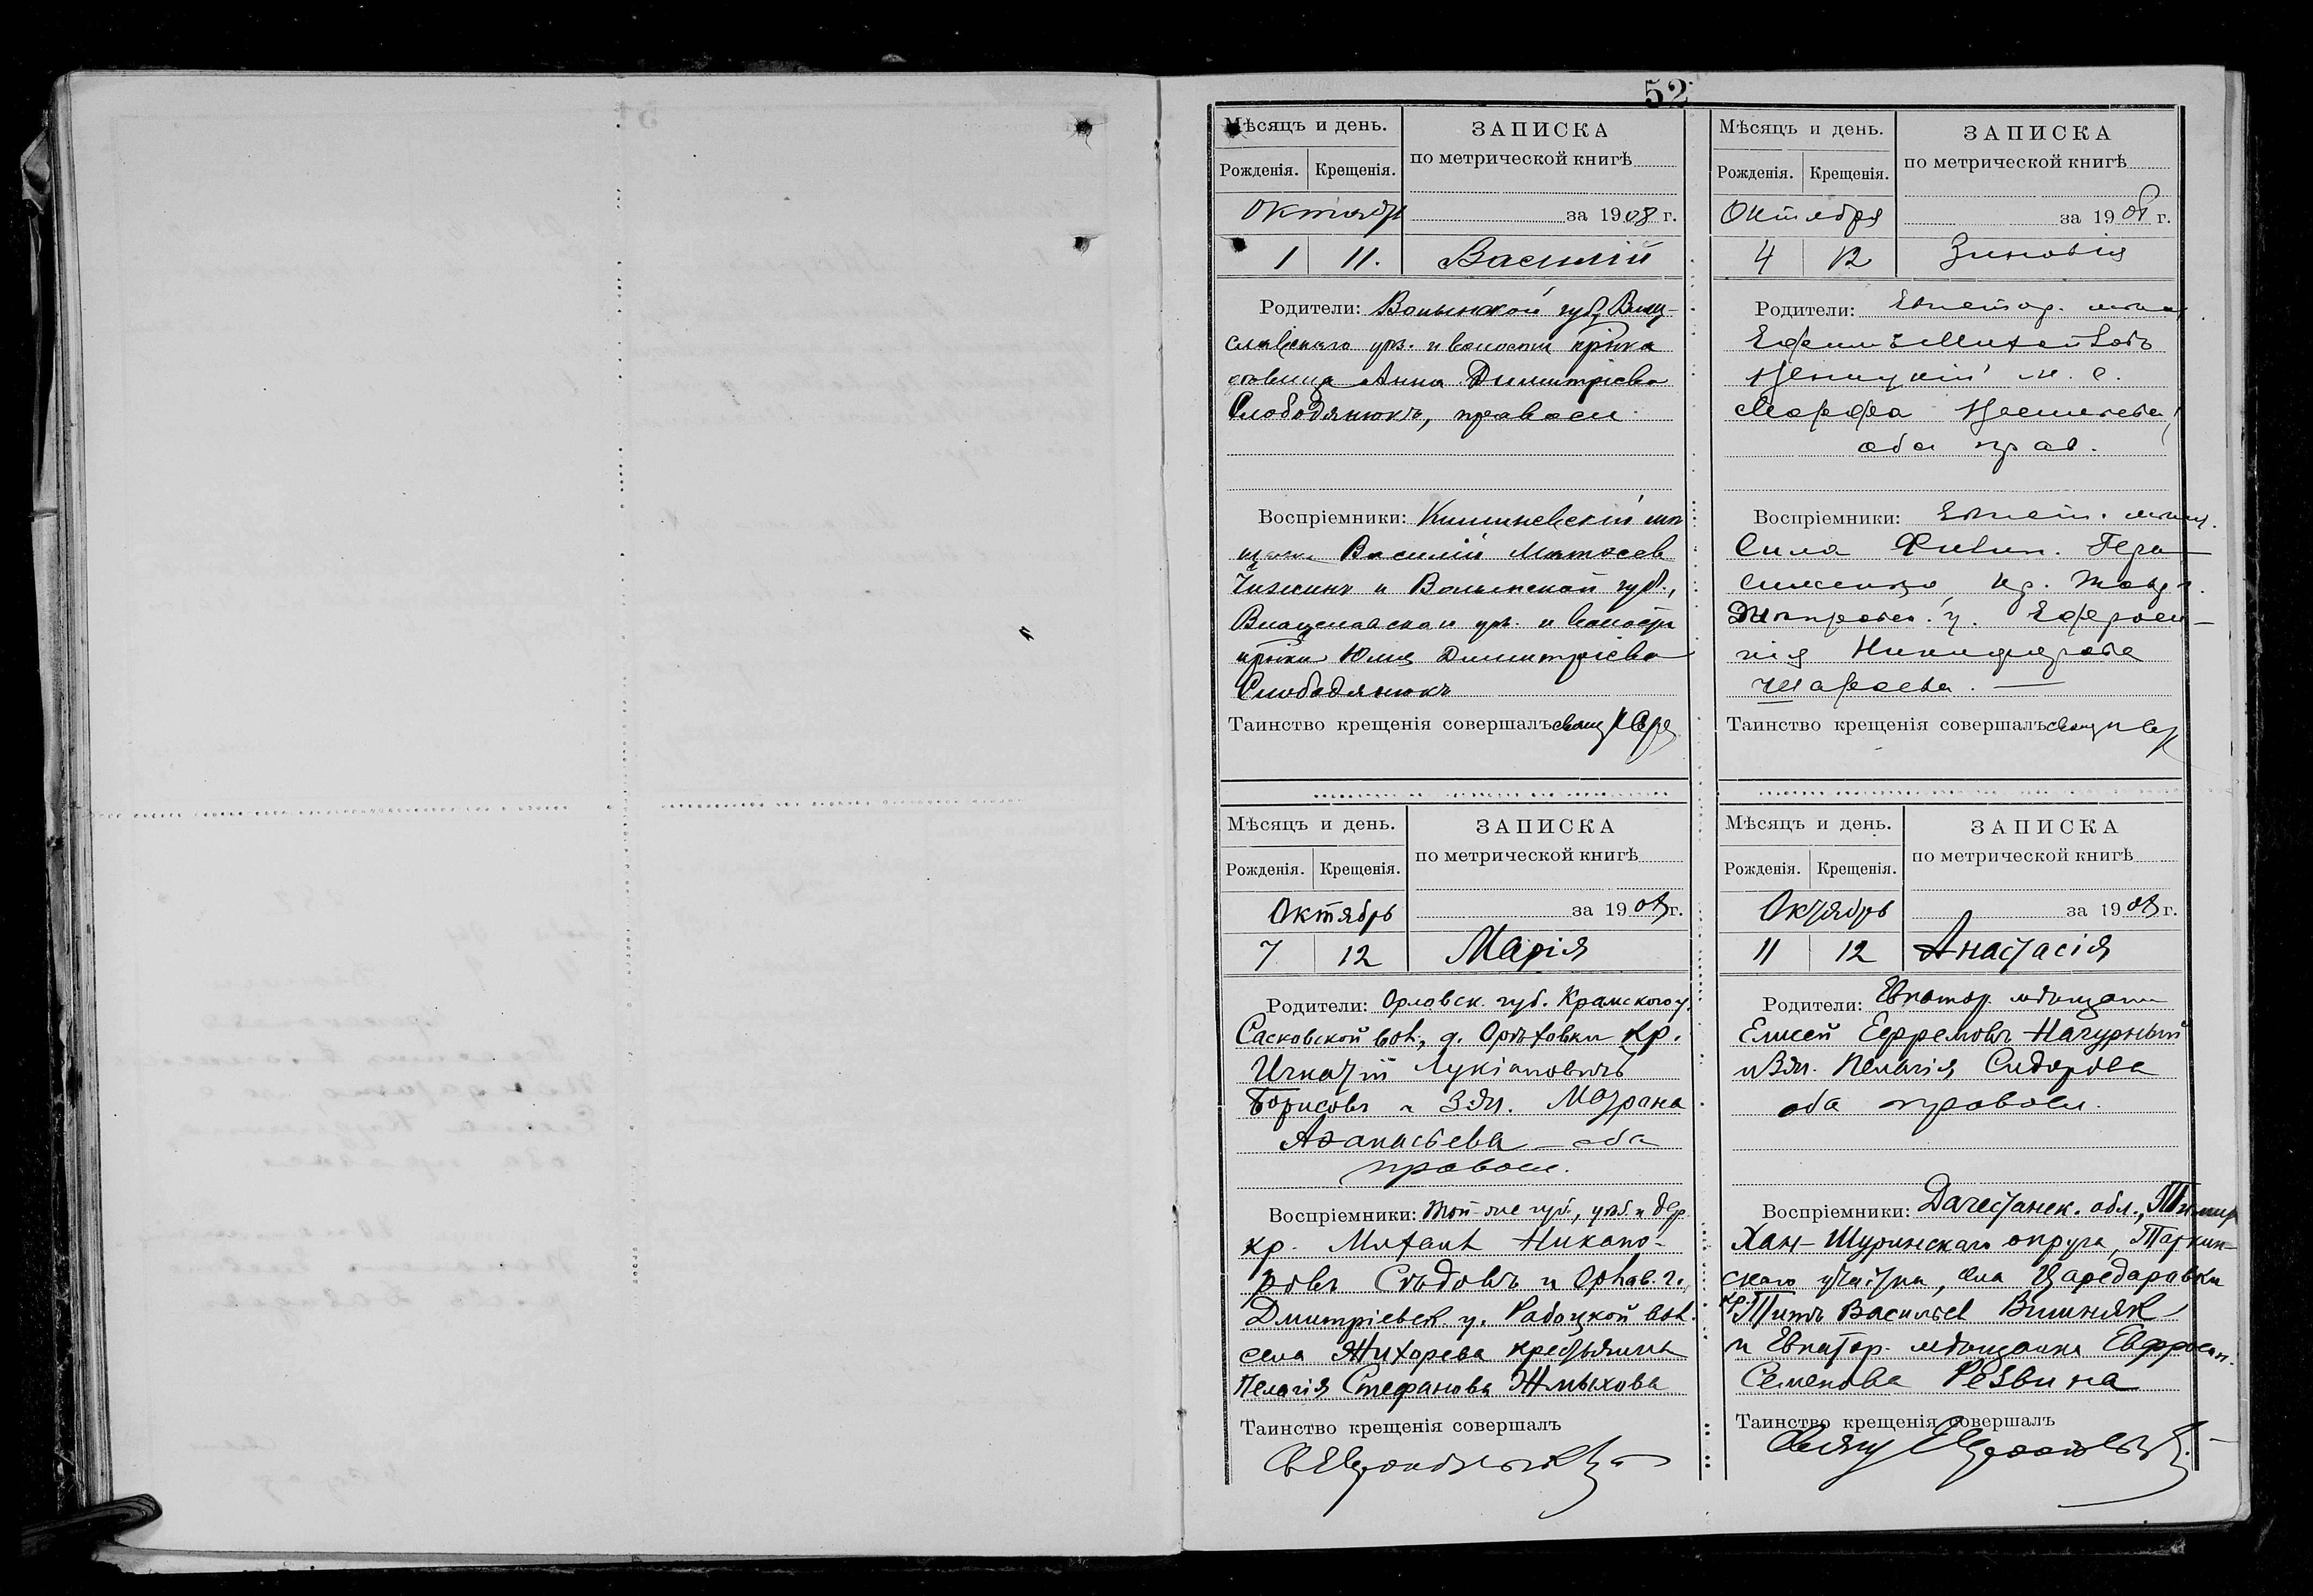 52
Мѣсяцъ и день.
ЗАПИСКА
по метрической книгѣ
Рожденія. Крещенія.
Октябрь
за 1908 г.
1 11. Василій
Родители: Волынской губ,
уѣз. и волости
дѣвица Анна Димитріева
Слободянюкъ, правосл.
Воспріемники: Кишиневскій мѣ
щан. Василій Матѳеев
и Волынской губ.,
уѣз. и волости
Юлія Димитріева
Слободянюкъ
Таинство крещенія совершалъ свящ
Мѣсяцъ и день.
ЗАПИСКА
по метрической книгѣ
Рожденія. Крещенія.
Октября
за 1908 г.
4 12 Зиновія
Родители: Евпатор. мѣщ.
Ефимъ Михайловъ
и з. е.
Марфа
оба прав.
Воспріемники: Евпат. мѣщ.
Сила Филип. Гера
сименко, кр. Тавр. г.
Днѣпровск. у. Ефроси-
нія Никифорова
Таинство крещенія совершалъ свящ
Мѣсяцъ и день.
ЗАПИСКА
по метрической книгѣ
Рожденія. Крещенія.
Октябрь
за 1908 г.
7 12 Марія
Родители: Орловск. губ. Крамского у.
Сасковской вол., д. Орѣховки кр.
Игнатій Лукіановичъ
Борисовъ и з. ея Матрона
Аѳанасьева – оба
правосл.
Воспріемники: Той-же губ., уѣз. и дер.
кр. Михаил Никано-
ровъ Сѣдовъ и Орлов. г.
Дмитріевск. у. Работкой вол.
села Жихорева крестьянка
Пелагія Стефанова Жмыхова
Таинство крещенія совершалъ
Мѣсяцъ и день.
ЗАПИСКА
по метрической книгѣ
Рожденія. Крещенія.
Октябрь
за 1908 г.
11 12 Анастасія
Родители: Евпатор. мѣщане
Елисей Ефремовъ Нагурный
и з. ея. Пелагія Сидорова
оба правосл.
Воспріемники: Дагестанск. обл., Темир
Хан-Шуринскаго округа, Таркин-
скаго участка, села Царедаровки
кр. Титъ Васильев Вишняк
и Евпатор. мѣщанка Евфросин.
Семенова Резвина
Таинство крещенія совершалъ
Свящ